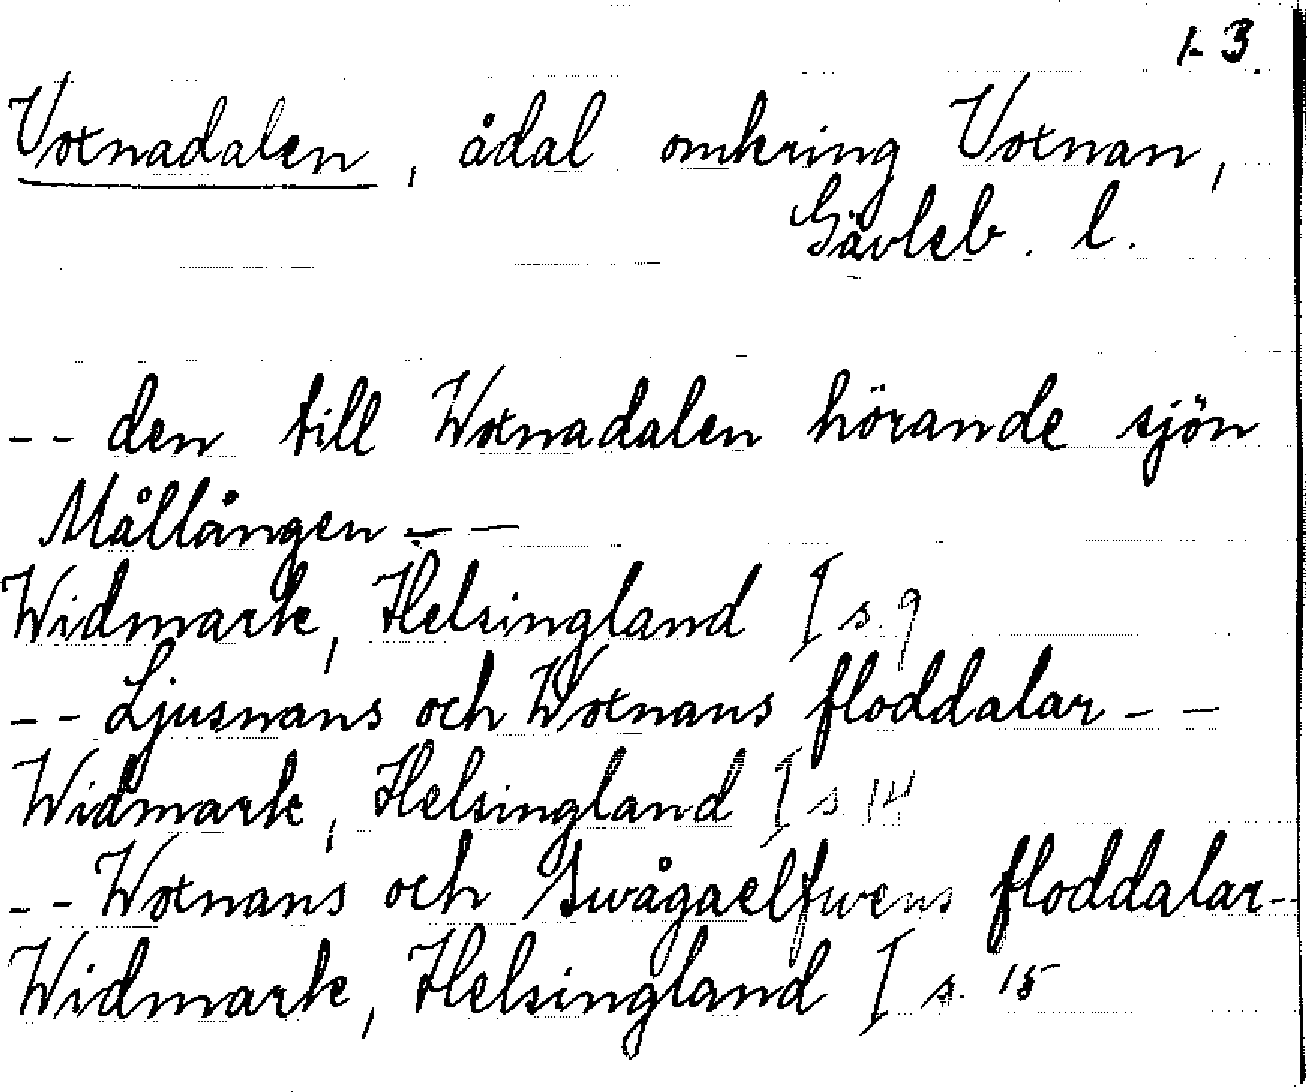 1-3.
Voxnadalen, ådal omkring Voxnan,
Gävleb. l.
-- den till Woxnadalen hörande sjön
Mållången --
Widmark, Helsingland I s. 9
-- Ljusnans och Woxnans floddalar --
Widmark, Helsingland I s 14
-- Woxnans och Swågaelfwens floddalar --
Widmark, Helsingland I s. 15